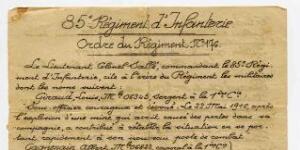 85e Régiment d'Infanterie
Ordre du Régiment N°
Le Lieutenant Colonel commandant le 85e Régi-
ment d'Infanterie, cite à l'ordre du Régiment les militaires
dont les noms suivent :
Giraud, Louis, Mle 06345, sergent à la 1ère Cie
Sous officier courageux et dévoué. Le 22 Mai 1916, après
l'explosion d'une mine qui avait causé des pertes dans sa
compagnie, a contribué à rétablir la situation en se por-
tant rapidement à son nouveau poste de combat
Albert Mle à la 1ère Cie